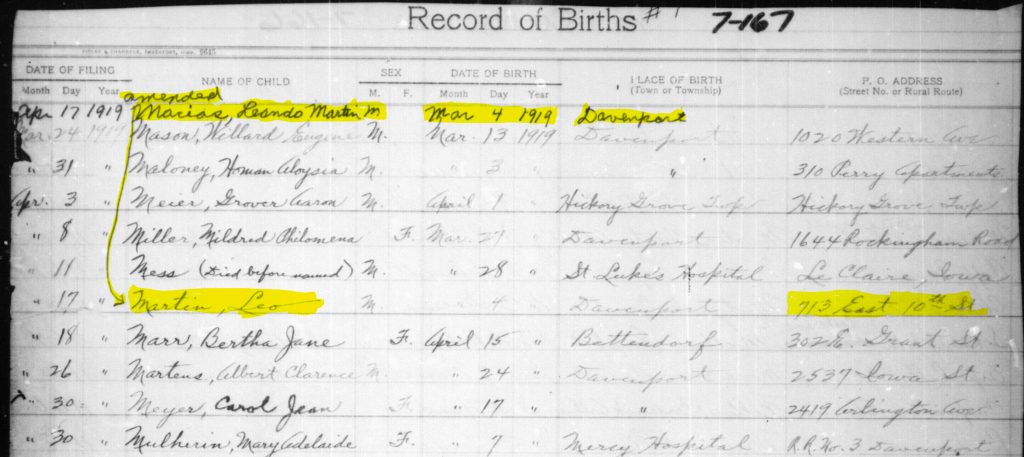 Record of Births #1 7-167
DATE OF FILING NAME OF CHILD SEX DATE OF BIRTH PLACE OF BIRTH P. O. ADDRESS
Month Day Year M. F. Month Day Year (Town or Township) (Street No. or Rural Route)
amended
Apr. 17 1919 Macias, Leando Martin M Mar 4 1919 Davenport
Mar. 24 1919 Mason, Willard Eugene M. Mar. 13 1919 Davenport 1020 Western Ave
" 31 " Maloney, Homan Aloysia M. " 3 " " 310 Perry Apartments
Apr. 3 " Meier, Grover Aaron M. April 1 " Hickory Grove Twp Hickory Grove Twp
" 8 " Miller, Mildred Philomena F. Mar. 27 " Davenport 1644 Rockingham Road
" 11 " Mess (Died before named) M. " 28 " St Luke's Hospital Le Claire, Iowa
" 17 " Martin, Leo M. " 4 " Davenport 713 East 10th St
" 18 " Marr, Bertha Jane F. April 15 " Bettendorf 302 E. Grant St.
" 26 " Martens, Albert Clarence M. " 24 " Davenport 2537 Iowa St.
" 30 " Meyer, Carol Jean F. " 17 " " 2419 Arlington Ave
" 30 " Mulherin, Mary Adelaide F. " 7 " Mercy Hospital R.R. No. 3 Davenport